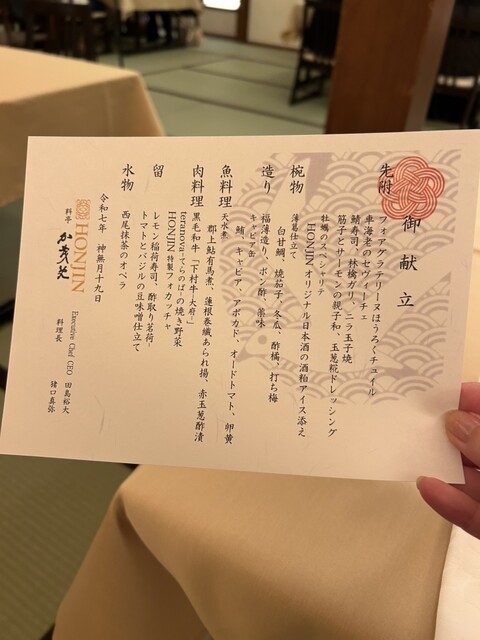 御献立
先附
フォアグラテリーヌほうろくチュイル
車海老のセヴィーチェ
鯖寿司、林檎ガリ、バニラ玉子焼
筋子とサーモンの親子和、玉葱糀ドレッシング
牡蠣のスペシャリテ
HONJIN オリジナル日本酒の酒粕アイス添え
椀物
薄葛仕立て
白甘鯛、焼茄子、冬瓜、酢橘、打ち梅
造り
福薄造り、ポン酢、薬味
キャビア缶
鮪、キャビア、アボカド、オードトマト、卵黄
魚料理
天水煮
郡上鮎有馬煮、蓮根巻繊あられ揚、赤玉葱酢漬
肉料理
黒毛和牛「下村牛-大府-」
terranova-てらのばーの焼き野菜
HONJIN 特製フォカッチャ
留
レモン稲荷寿司、酢取り茗荷
トマトとバジルの豆味噌仕立て
水物
西尾抹茶のオペラ
令和七年 神無月十九日
HONJIN
料亭
Executive Chef CEO 田島裕大
料理長 猪口真弥